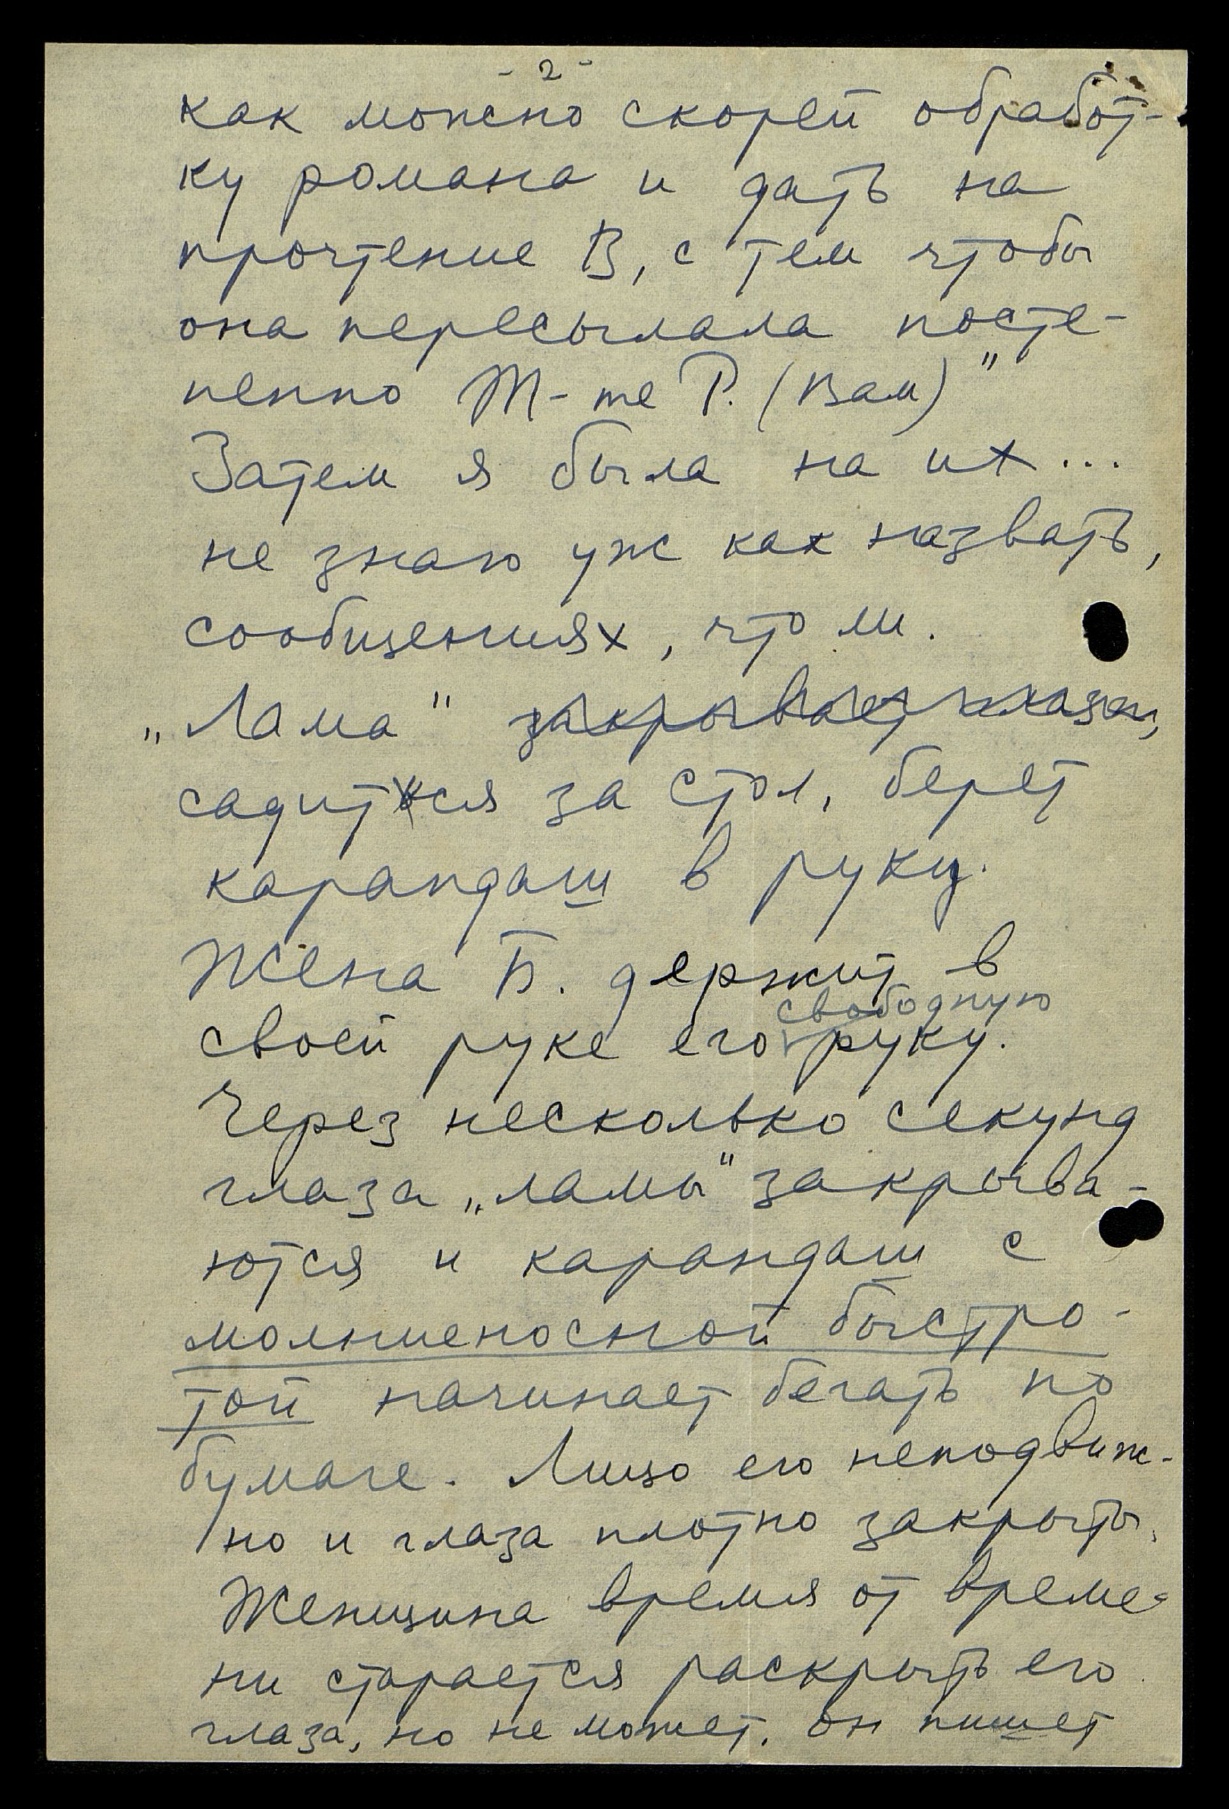 - 2 -
как можно скорей обработ-
ку романа и дать на
прочтение В, с тем чтобы
она пересылала посте-
пенно М-me Р. (Вам)"
Затем я была на их...
не знаю уж как назвать,
сообщениях, что ли.
„Лама" закрывает глаза,
садится за стол, берет
карандаш в руку.
Жена Б. держит в
свободную
своей руке его руку.
Через несколько секунд
глаза „ламы" закрыва-
ются и карандаш с
молниеносной быстро-
той начинает бегать по
бумаге. Лицо его неподвиж-
но и глаза плотно закрыты.
Женщина время от време-
ни старается раскрыть его
глаза, но не может. Он пишет